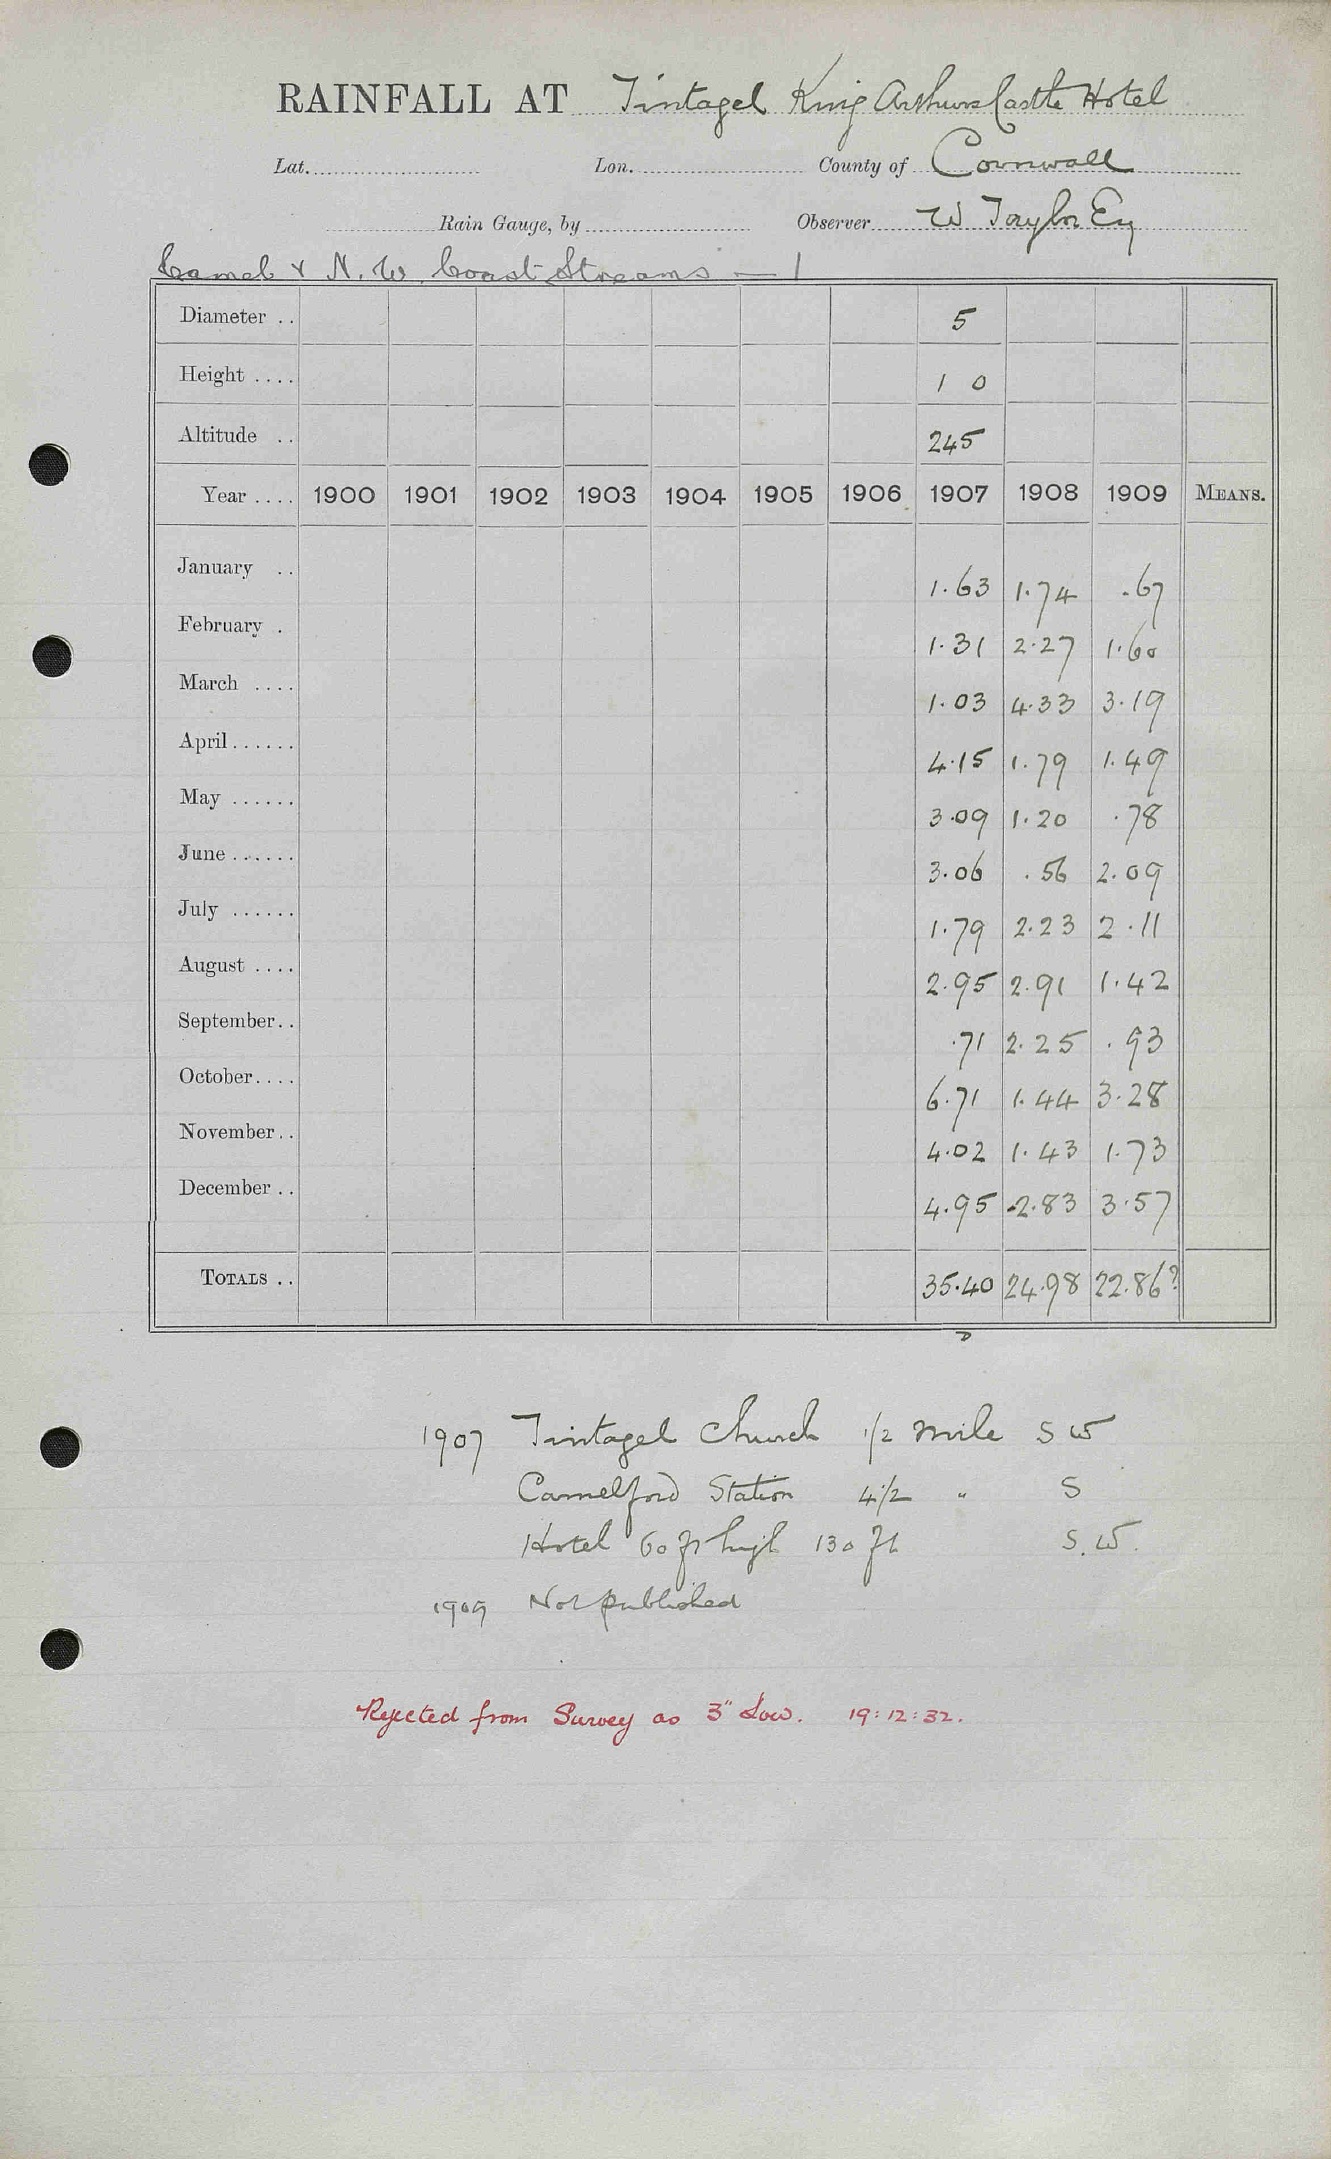 RAINFALL AT Tintagel King Arthurs Castle Hotel
Lat. Lon. County of Cornwall
Rain Gauge, by Observer W Taylor Esq
Camel & N. W. Coast Streams — 1
Diameter .. 5
Height .... 1 0
Altitude .. 245
Year .... 1900 1901 1902 1903 1904 1905 1906 1907 1908 1909 MEANS.
January .. 1.63 1.74 .67
February . 1.31 2.27 1.60
March .... 1.03 4.33 3.19
April...... 4.15 1.79 1.49
May ...... 3.09 1.20 .78
June ...... 3.06 .56 2.09
July ...... 1.79 2.23 2.11
August .... 2.95 2.91 1.42
September.. .71 2.25 .93
October.... 6.71 1.44 3.28
November.. 4.02 1.43 1.73
December .. 4.95 2.83 3.57
TOTALS .. 35.40 24.98 22.86?
D
1907 Tintagel Church 1/2 mile S W
Camelford Station 4 1/2 " S
Hotel 60 ft high 130 ft S.W.
1909 Not published
Rejected from Survey as 3" Low. 19:12:32.